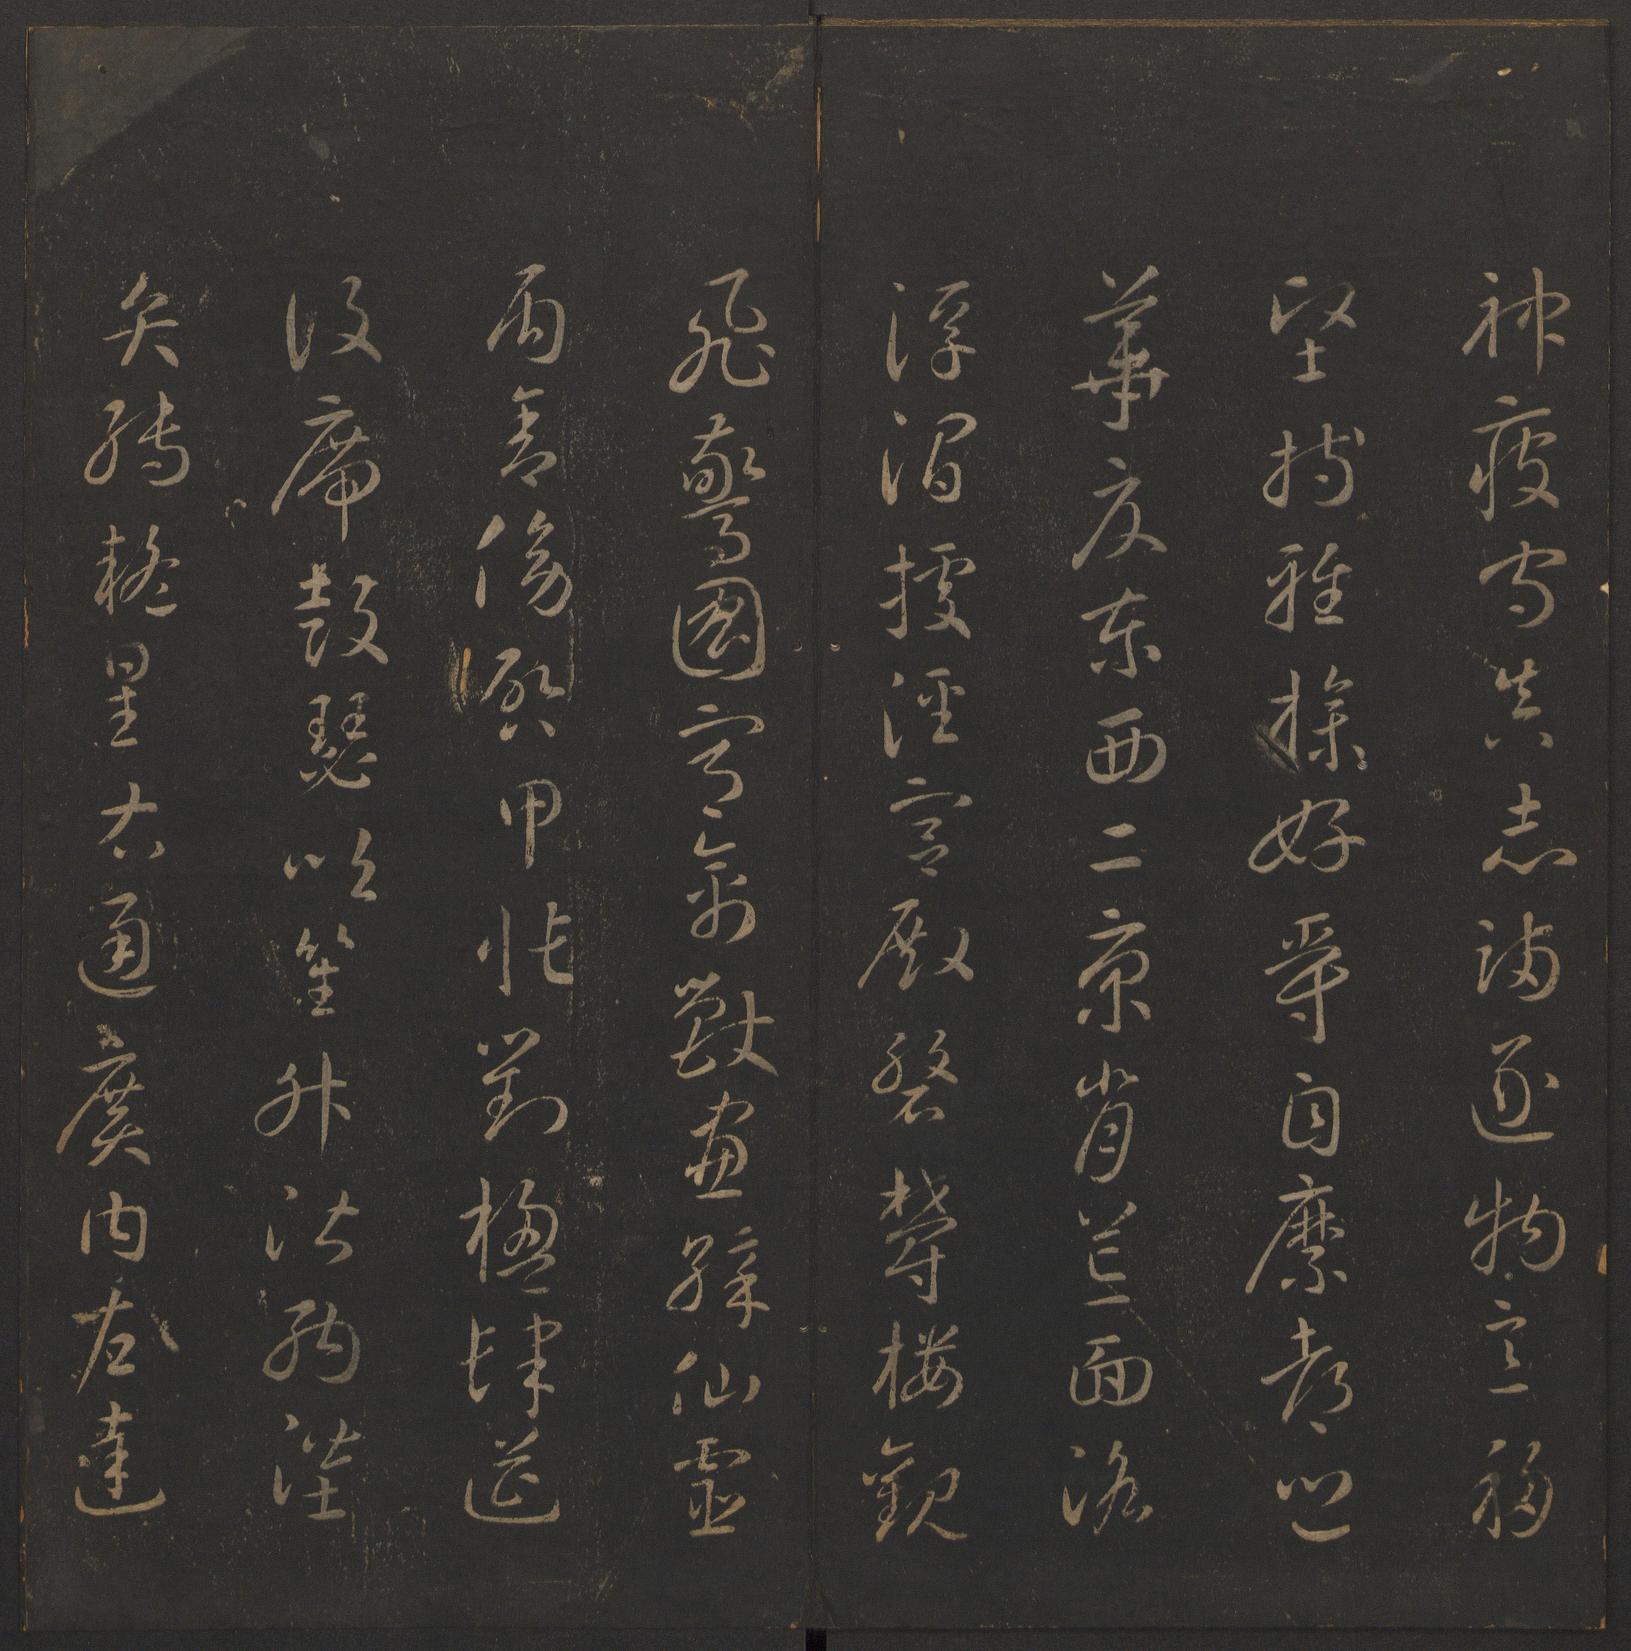 神疲守真志滿逐物意移
堅持雅操好爵自縻都邑
華夏東西二京背芒面洛
浮渭據涇宮殿磐鬱樓觀
飛驚圖寫禽獸畫綵仙靈
丙舍傍啟甲帳對楹肆筵
設席鼓瑟吹笙升階納陛
弁轉疑星右通廣內左達